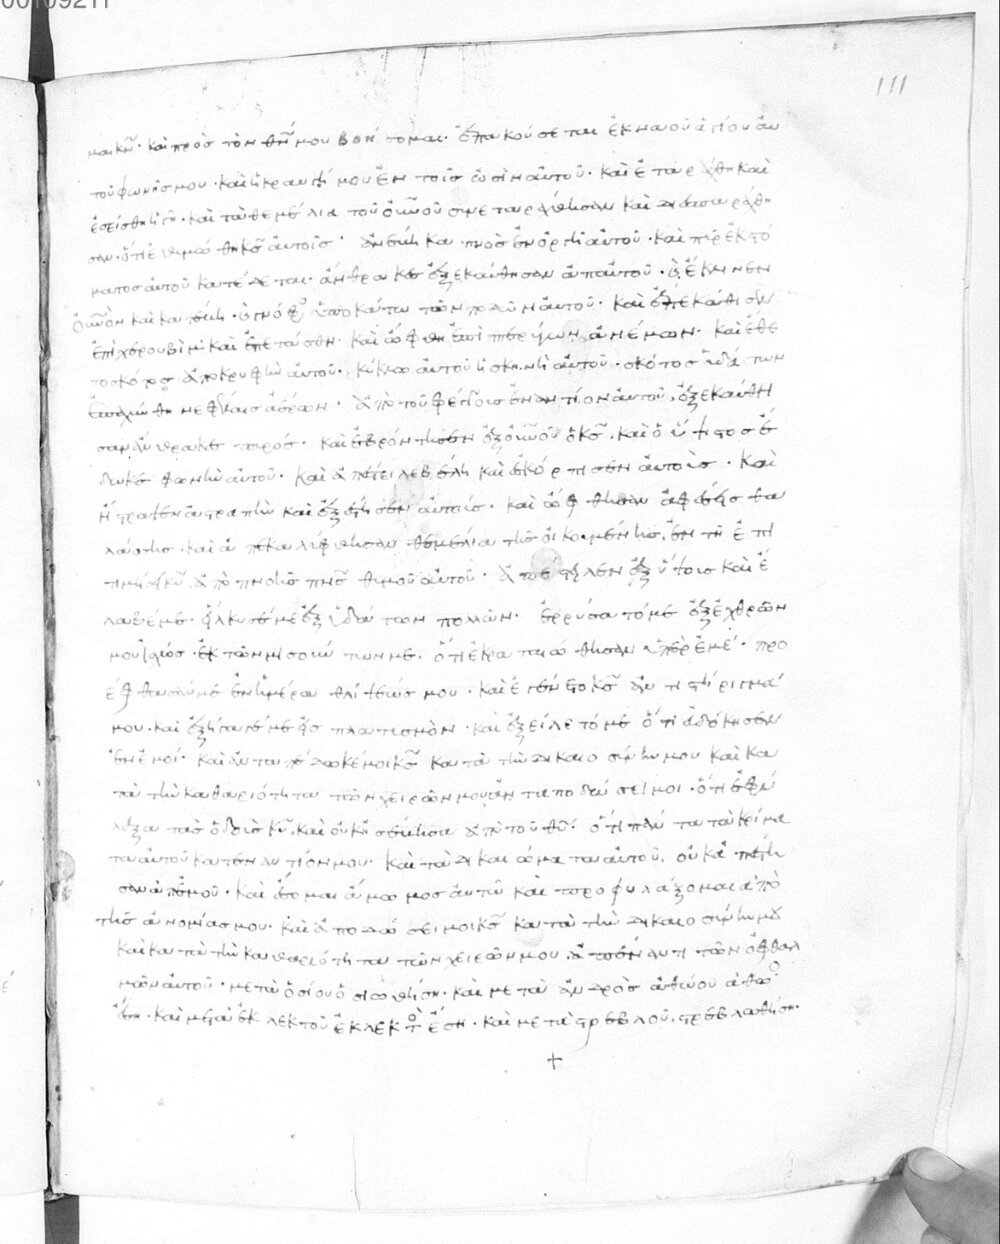 00109211
111
μαι κν̅· καὶ πρὸς τὸν θν̅ μου βοήσομαι· ὑπακούσεται ἐκ ναοῦ ἁγίου αυ
τοῦ φωνῆς μου· καὶ ἡ κραυγή μου ἐν τοῖς ὠσὶν αὐτοῦ· καὶ ἐταράχθη καὶ
ἐσείσθη ἡ γῆ· καὶ τὰ θεμέλια τοῦ οὐνοῦ συνεταράχθησαν καὶ διεσπαράχθη
σαν· ὅτι ἐθυμώθη κς̅ αὐτοῖς· ἀνέβη καπνὸς ἐν ὀργῆ αὐτοῦ· καὶ πῦρ ἐκ στό
ματος αὐτοῦ κατέδεται· ἄνθρακες ἐξεκαύθησαν ἀπ αὐτοῦ· ἔκλινεν
οὐνὸν καὶ κατέβη· γνόφος ὑποκάτω τῶν ποδῶν αὐτοῦ· καὶ ἐπεκάθισεν
ἐπὶ χερουβὶμ καὶ ἐπετάσθη· καὶ ὤφθη ἐπὶ πτερύγων ἀνέμων· καὶ ἔθε
το σκότος ἀποκρυφὴν αὐτοῦ· κύκλω αὐτοῦ ἡ σκηνὴ αὐτοῦ· σκότος ὑδάτων
νεφέλαις ἀέρων· ἀπὸ τοῦ φέγγους ἐναντίον αὐτοῦ, ἐξεκαύθη
σαν ἄνθρακες πυρός· καὶ ἐβρόντησεν ἐξ οὐνοῦ ὁ κς̅· καὶ ὁ ὕψιστος ἔ
δωκε φωνὴν αὐτοῦ· καὶ ἀπέστειλε βέλη καὶ ἐσκόρπισεν αὐτοὺς· καὶ
ἤστραψεν ἀστραπὴν καὶ ἐξέστησεν αὐτούς· καὶ ὤφθησαν ἀφέσεις θα
λάσσης· καὶ ἀπεκαλύφθησαν θεμέλια τῆς οἰκουμένης, ἐν τῆ ἐπι
τιμήσει κυ̅, ἀπὸ πνοῆς πνς̅ θυμοῦ αὐτοῦ· ἀπέστειλεν ἐξ ὕψους καὶ ἔ
λαβέ με· εἵλκυσέ με ἐξ ὑδάτων πολλῶν· ἐρρύσατό με ἐξ ἐχθρῶν
μου ἰσχύος· ἐκ τῶν μισούντων με· ὅτι ἐκραταιώθησαν ὑπὲρ ἐμέ· προ
έφθασάν με ἐν ἡμέρα θλίψεώς μου· καὶ ἐγένετο κς̅ ἀντιστήριγμά
μου· καὶ ἐξήγαγέ με εἰς πλατυσμὸν· καὶ ἐξείλετό με ὅτι εὐδόκησεν
ἐν ἐμοί· καὶ ἀνταπέδωκέ μοι κς̅ κατὰ τὴν δικαιοσύνην μου καὶ κα
τὰ τὴν καθαριότητα τῶν χειρῶν μου ἀνταποδώσει μοι· ὅτι ἐφύ
λαξα τὰς ὁδοὺς κυ̅· καὶ οὐκ ἠσέβησα ἀπὸ τοῦ θυ̅· ὅτι πάντα τὰ κρίμα
τα αὐτοῦ κατεναντίον μου· καὶ τὰ δικαιώματα αὐτοῦ, οὐκ ἀπέστη
σαν ἀπ ἐμοῦ· καὶ ἔσομαι ἄμωμος αὐτῶ καὶ προφυλάξομαι ἀπὸ
τῆς ἀνομίας μου· καὶ ἀποδώσει μοι κς̅ κατὰ τὴν δικαιοσύνην μου
καὶ κατὰ τὴν καθαριότητα τῶν χειρῶν μου ἀντι τῶν ὀφθαλ
μῶν αὐτοῦ· μετὰ ὁσίου ὁσιωθήση· καὶ μετὰ ἀνδρὸς ἀθώου ἀθῶος
ἔση· καὶ μετὰ ἐκλεκτοῦ ἐκλεκτὸς ἔση· καὶ μετὰ στρεβλοῦ, στρεβλωθήση·
+